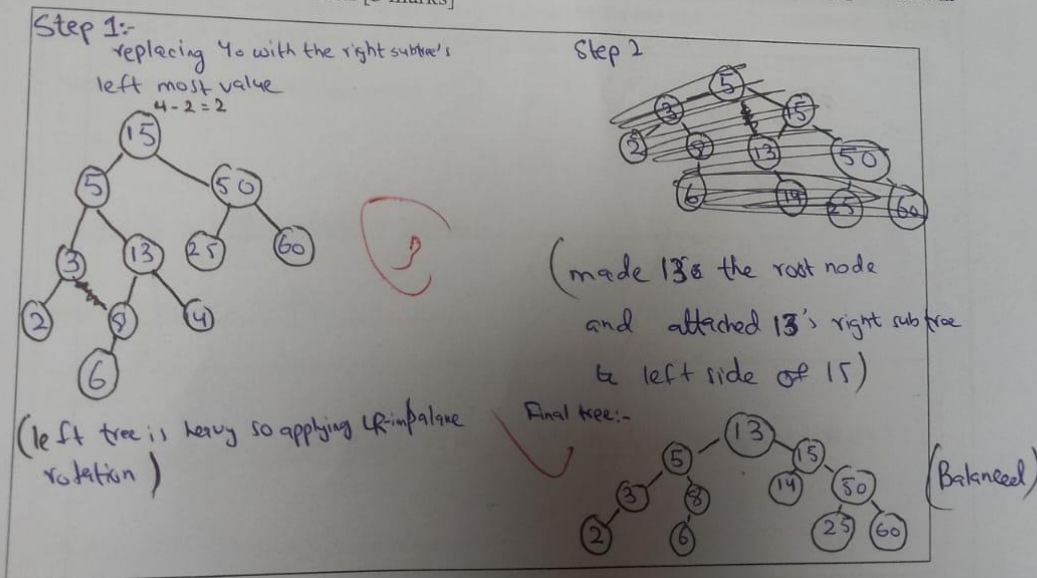 marks]
Step 1:-
replacing 40 with the right subtree's
left most value
4-2=2
15
5
50
3
13
25
60
2
8
14
6
(left tree is heavy so applying LR-imbalane
rotation)
3
Step 2
5
3
15
2
8
13
50
6
14
25
60
(made 13 the root node
and attached 13's right subtree
to left side of 15)
Final tree:-
13
5
15
3
8
14
50
2
6
25
60
(Balanceed)